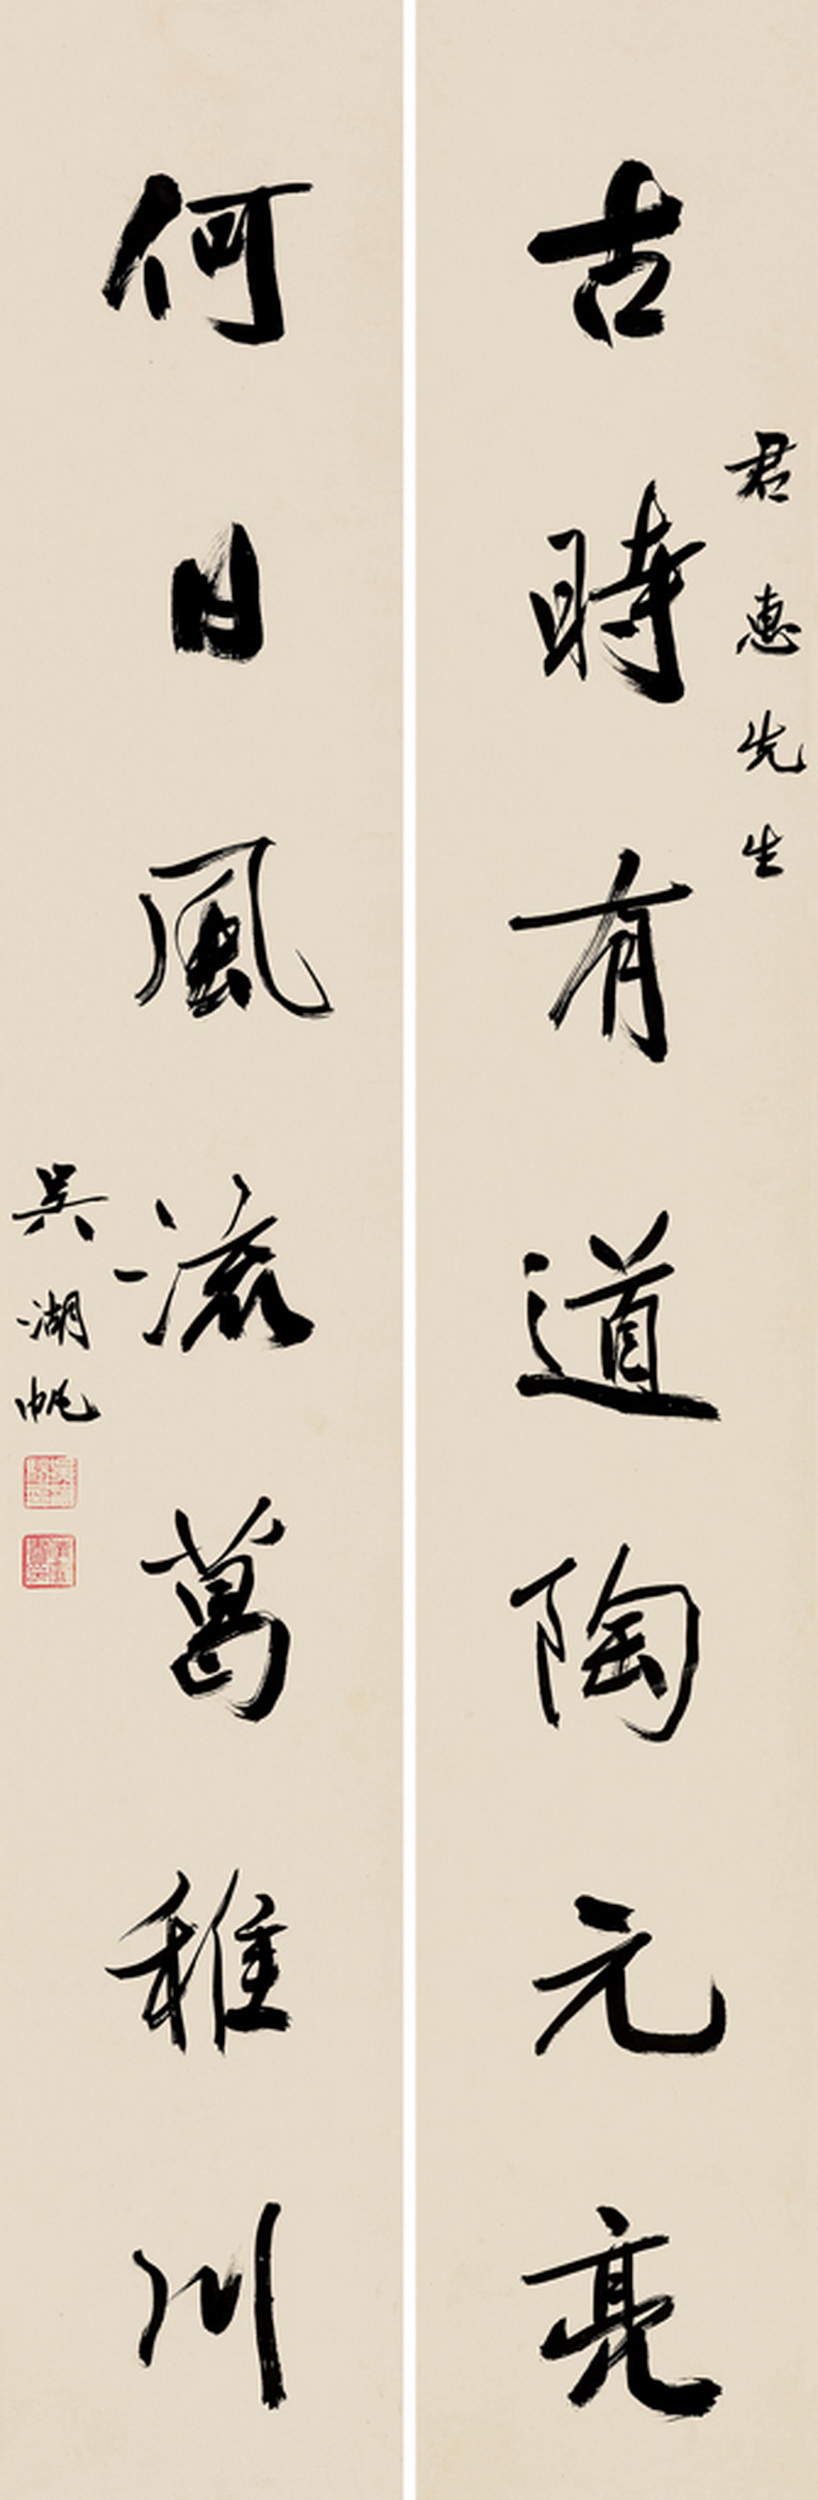 古時有道陶元亮
君惠先生
何日風流葛稚川
吳湖帆